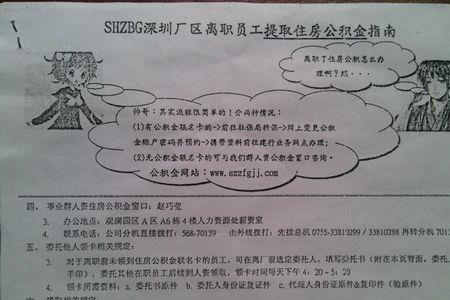 SHZBG深圳厂区离职员工提取住房公积金指南
离职了住房公积怎么办
理啊？烦...
帅哥：其实流程很简单的！分两种情况：
(1)有公积金联名卡的->前往社保局转保->网上变更公积
金账户密码并预约->携带资料前往建行业务网点办理；
(2)无公积金联名卡的可与我们群人资公积金窗口咨询。
公积金网站：www.szzfgjj.com
四、 事业群人资住房公积金窗口：赵巧莹
3. 办公地点：观澜园区A区A6栋4楼人力资源处薪资室
4. 联系电话：公司分机直接拨打：568-70139 由外线拨打：先拨总机0755-3381299/33810288再转分机701
五、 委托他人领卡相关规定：
3. 对于离职前未领到住房公积金联名卡的员工，可在离厂前选定委托人，填写委托书（附在本页背面，委托
手印），委托其他在职员工后续到人资领取，领卡时间每天下午4：20-5：20
4. 领卡所需资料：a. 委托书原件 b. 委托人身份证复印件 c. 代理人身份证原件&复印件（验原件）